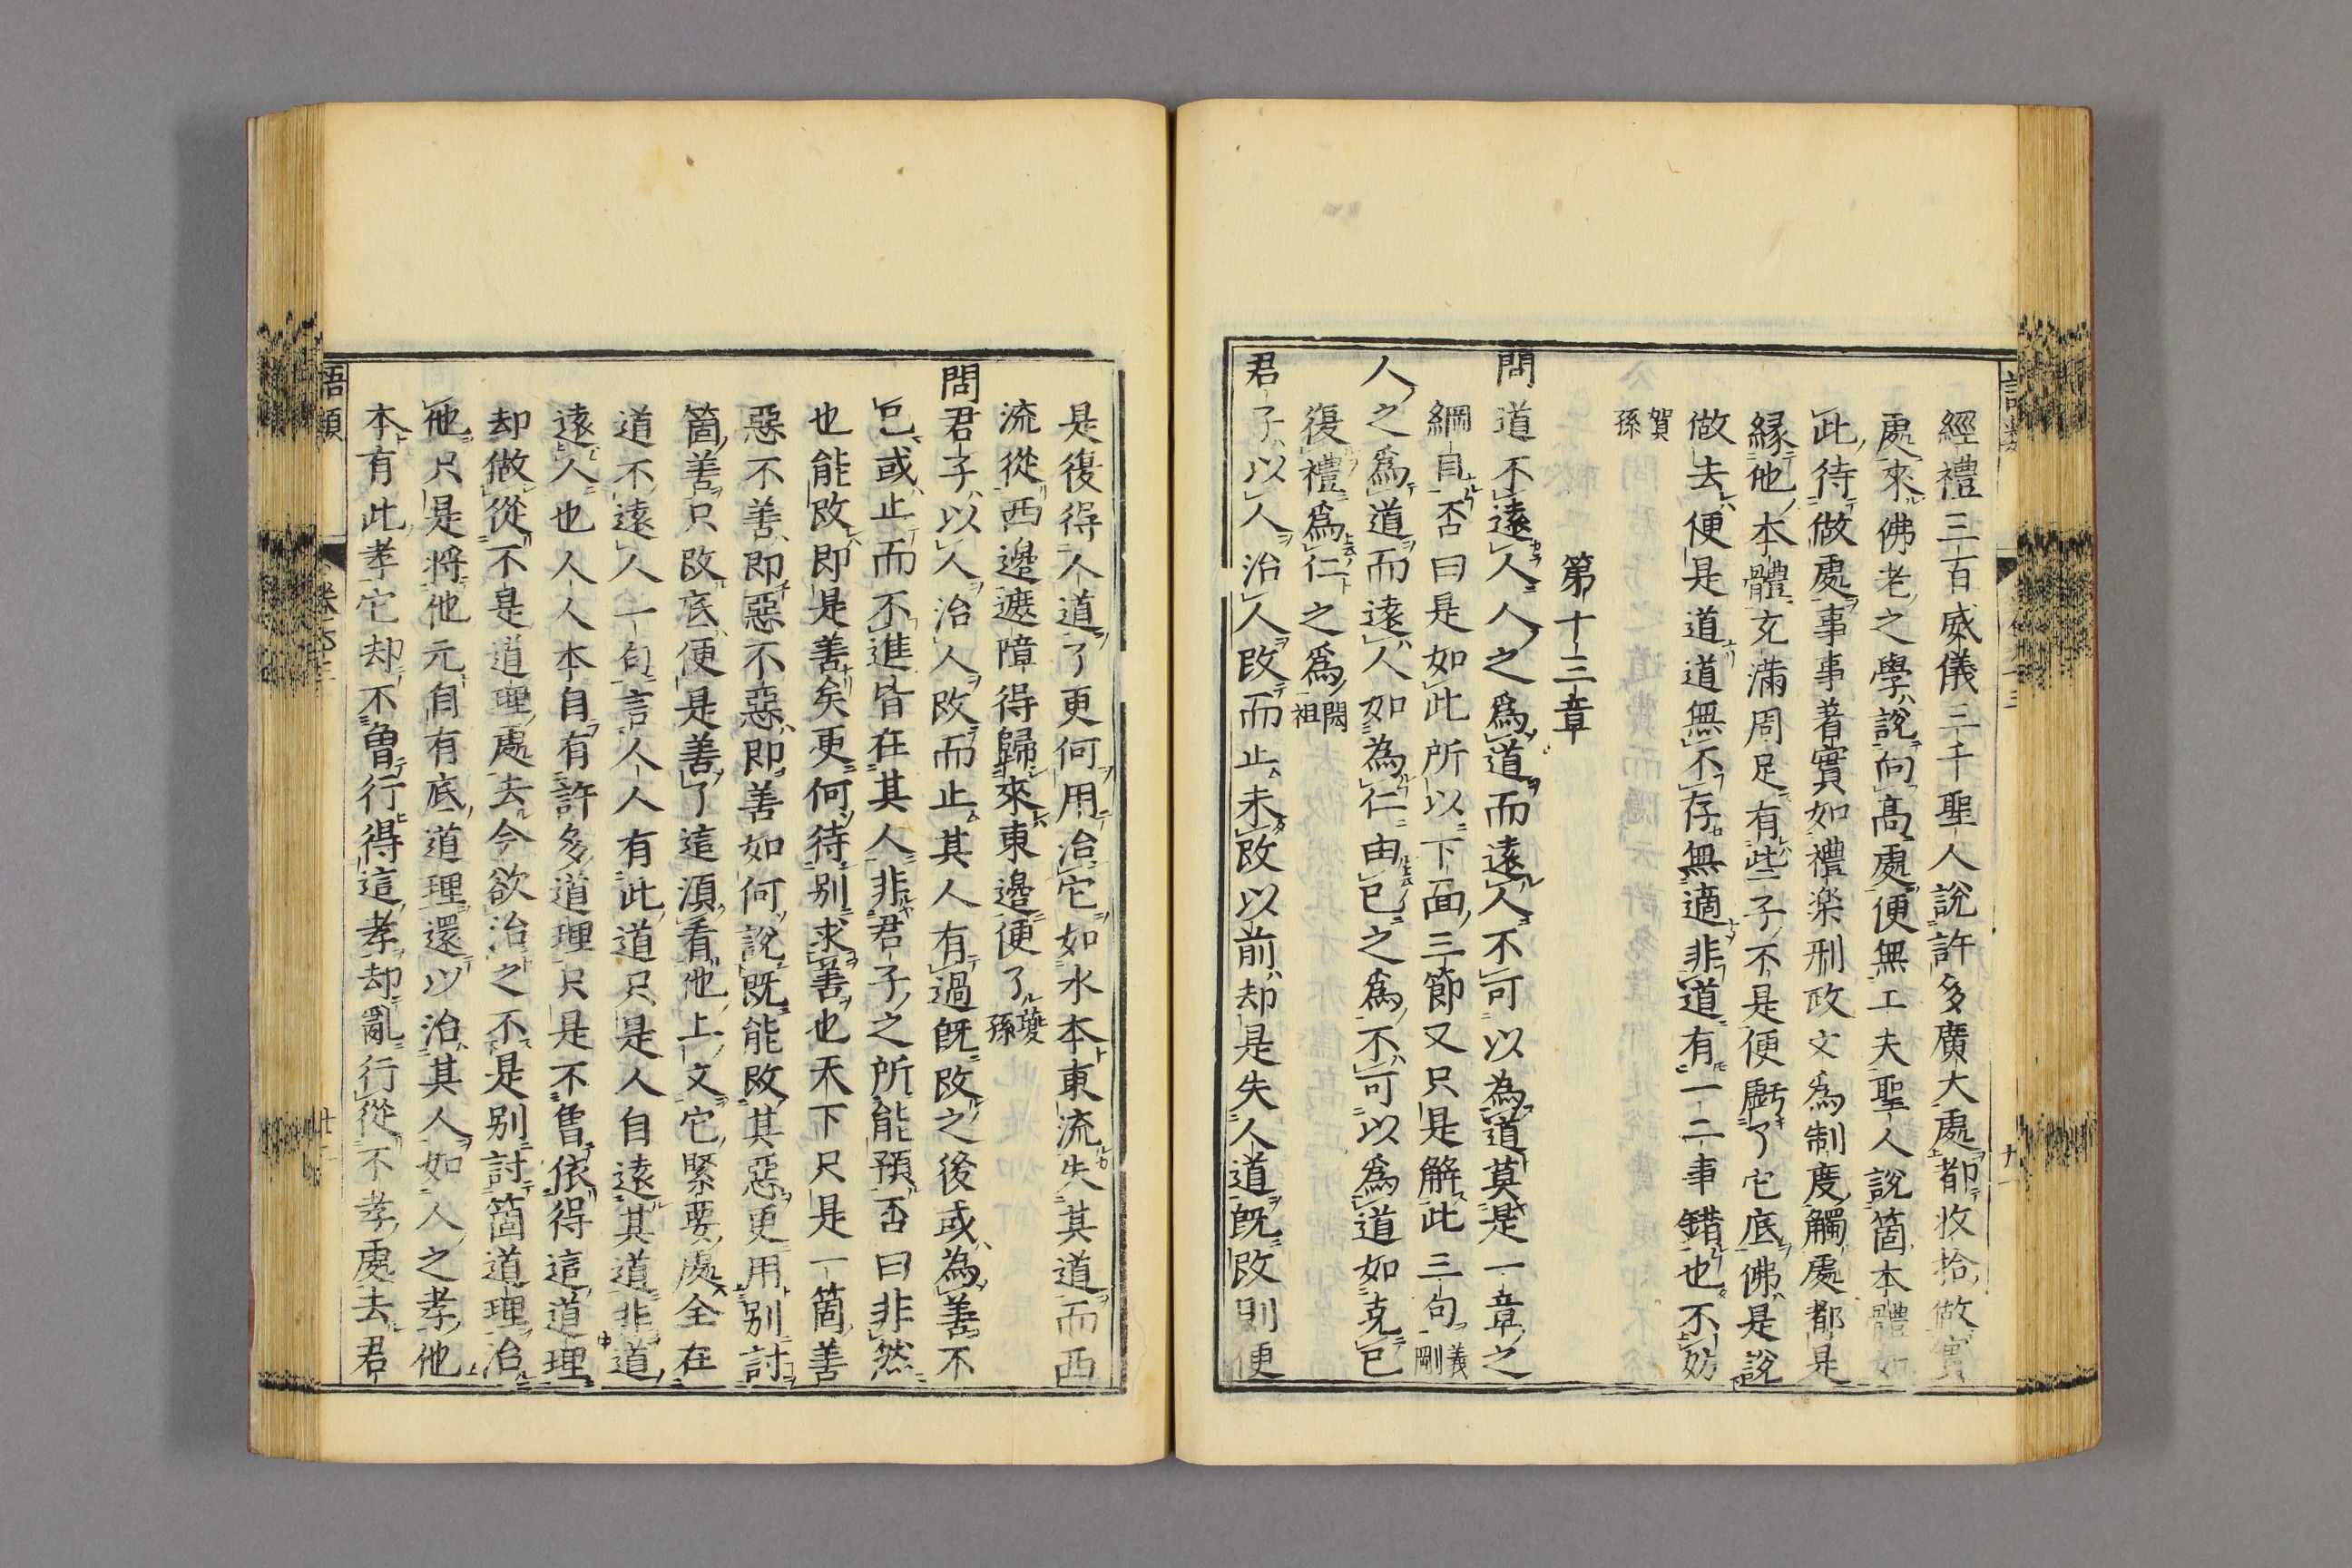 經禮三百威儀三千聖人說許多廣大處都收拾做實
處來佛老之學說向高處便無工夫聖人說箇本體如
此待做處事事著實如禮楽刑政文為制度觸處都是
縁他本體充滿周足有些子不是便虧了它底佛是說
做去便是道道無不存無適非道有一二事錯也不妨
賀孫
第十三章
問道不遠人人之為道而遠人不可以為道莫是一章之
綱目否曰是如此所以下面三節又只是解此三句義剛
人之為道而遠人如為仁由已之為不可以為道如克已
復禮為仁之為閎祖
君子以人治人改而止未改以前却是失人道既改則便
是復得人道了更何用治它如水本東流失其道而西
流從西邊遮障得歸來東邊便了䕫孫
問君子以人治人改而止其人有過既改之後或為善不
已或止而不進皆在其人非君子之所能預否曰非然
也能改即是善矣更何待别求善也天下只是一箇善
惡不善即惡不惡即善如何說既能改其惡更用别討
箇善只改底便是善了這湏看他上文它緊要處全在
道不遠人一句言人人有此道只是人自遠其道非道
遠人也人人本自有許多道理只是不曾依得這道理
却做從不是道理處去今欲治之不是别討箇道理治
他只是將他元自有底道理還以治其人如人之孝他
本有此孝它却不曾行得這孝却亂行從不孝處去君
語類
卷六十三